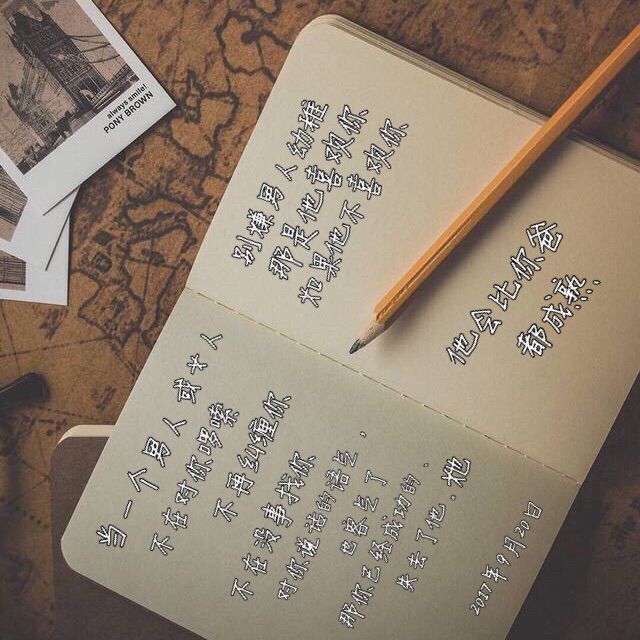 always smile!
PONY BROWN
别嫌男人幼稚
那是他喜欢你
如果他不喜欢你
他会比你爸
都成熟
当一个男人或女人
不在对你啰嗦
不再纠缠你
不在没事找你
对你说话的语气，
也客气了
那你已经成功的、
失去了他。她
2017年9月20日